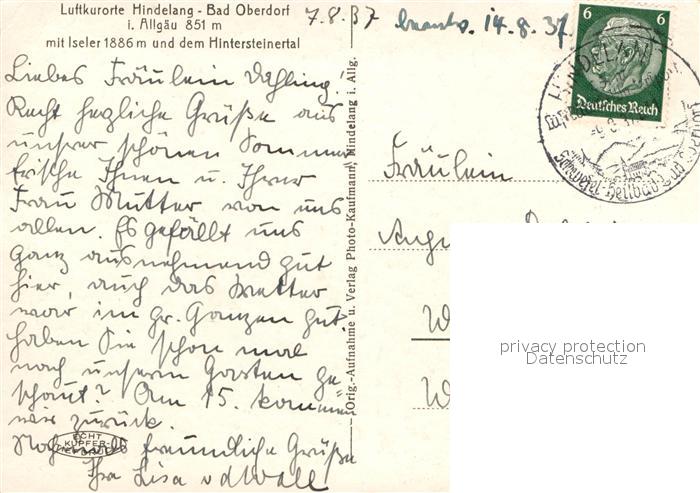 Luftkurorte Hindelang - Bad Oberdorf
i. Allgäu 851 m
mit Iseler 1886 m und dem Hintersteinertal
7.8.37
beantw. 14.8.37
Liebes Fräulein Dahling!
Recht herzliche Grüße aus
unsrer schönen Sommer
frische Ihnen u. Ihrer
Frau Mutter von uns
allen. Es gefällt uns
ganz ausnehmend gut
hier, auch das Wetter
war im gr. Ganzen gut.
haben Sie schon mal
nach unserm Garten ge
schaut? Am 15. kommen
wir zurück.
Nochmals freundliche Grüße
Ihre Lisa v d Wall
ECHT
KUPFER-
TIEFDRUCK
Orig.-Aufnahme u. Verlag Photo-Kaufmann, Hindelang i. Allg.
6 6
Deutsches Reich
HINDELANG
Schwefel-Heilbad
Fräulein
W
W
privacy protection
Datenschutz